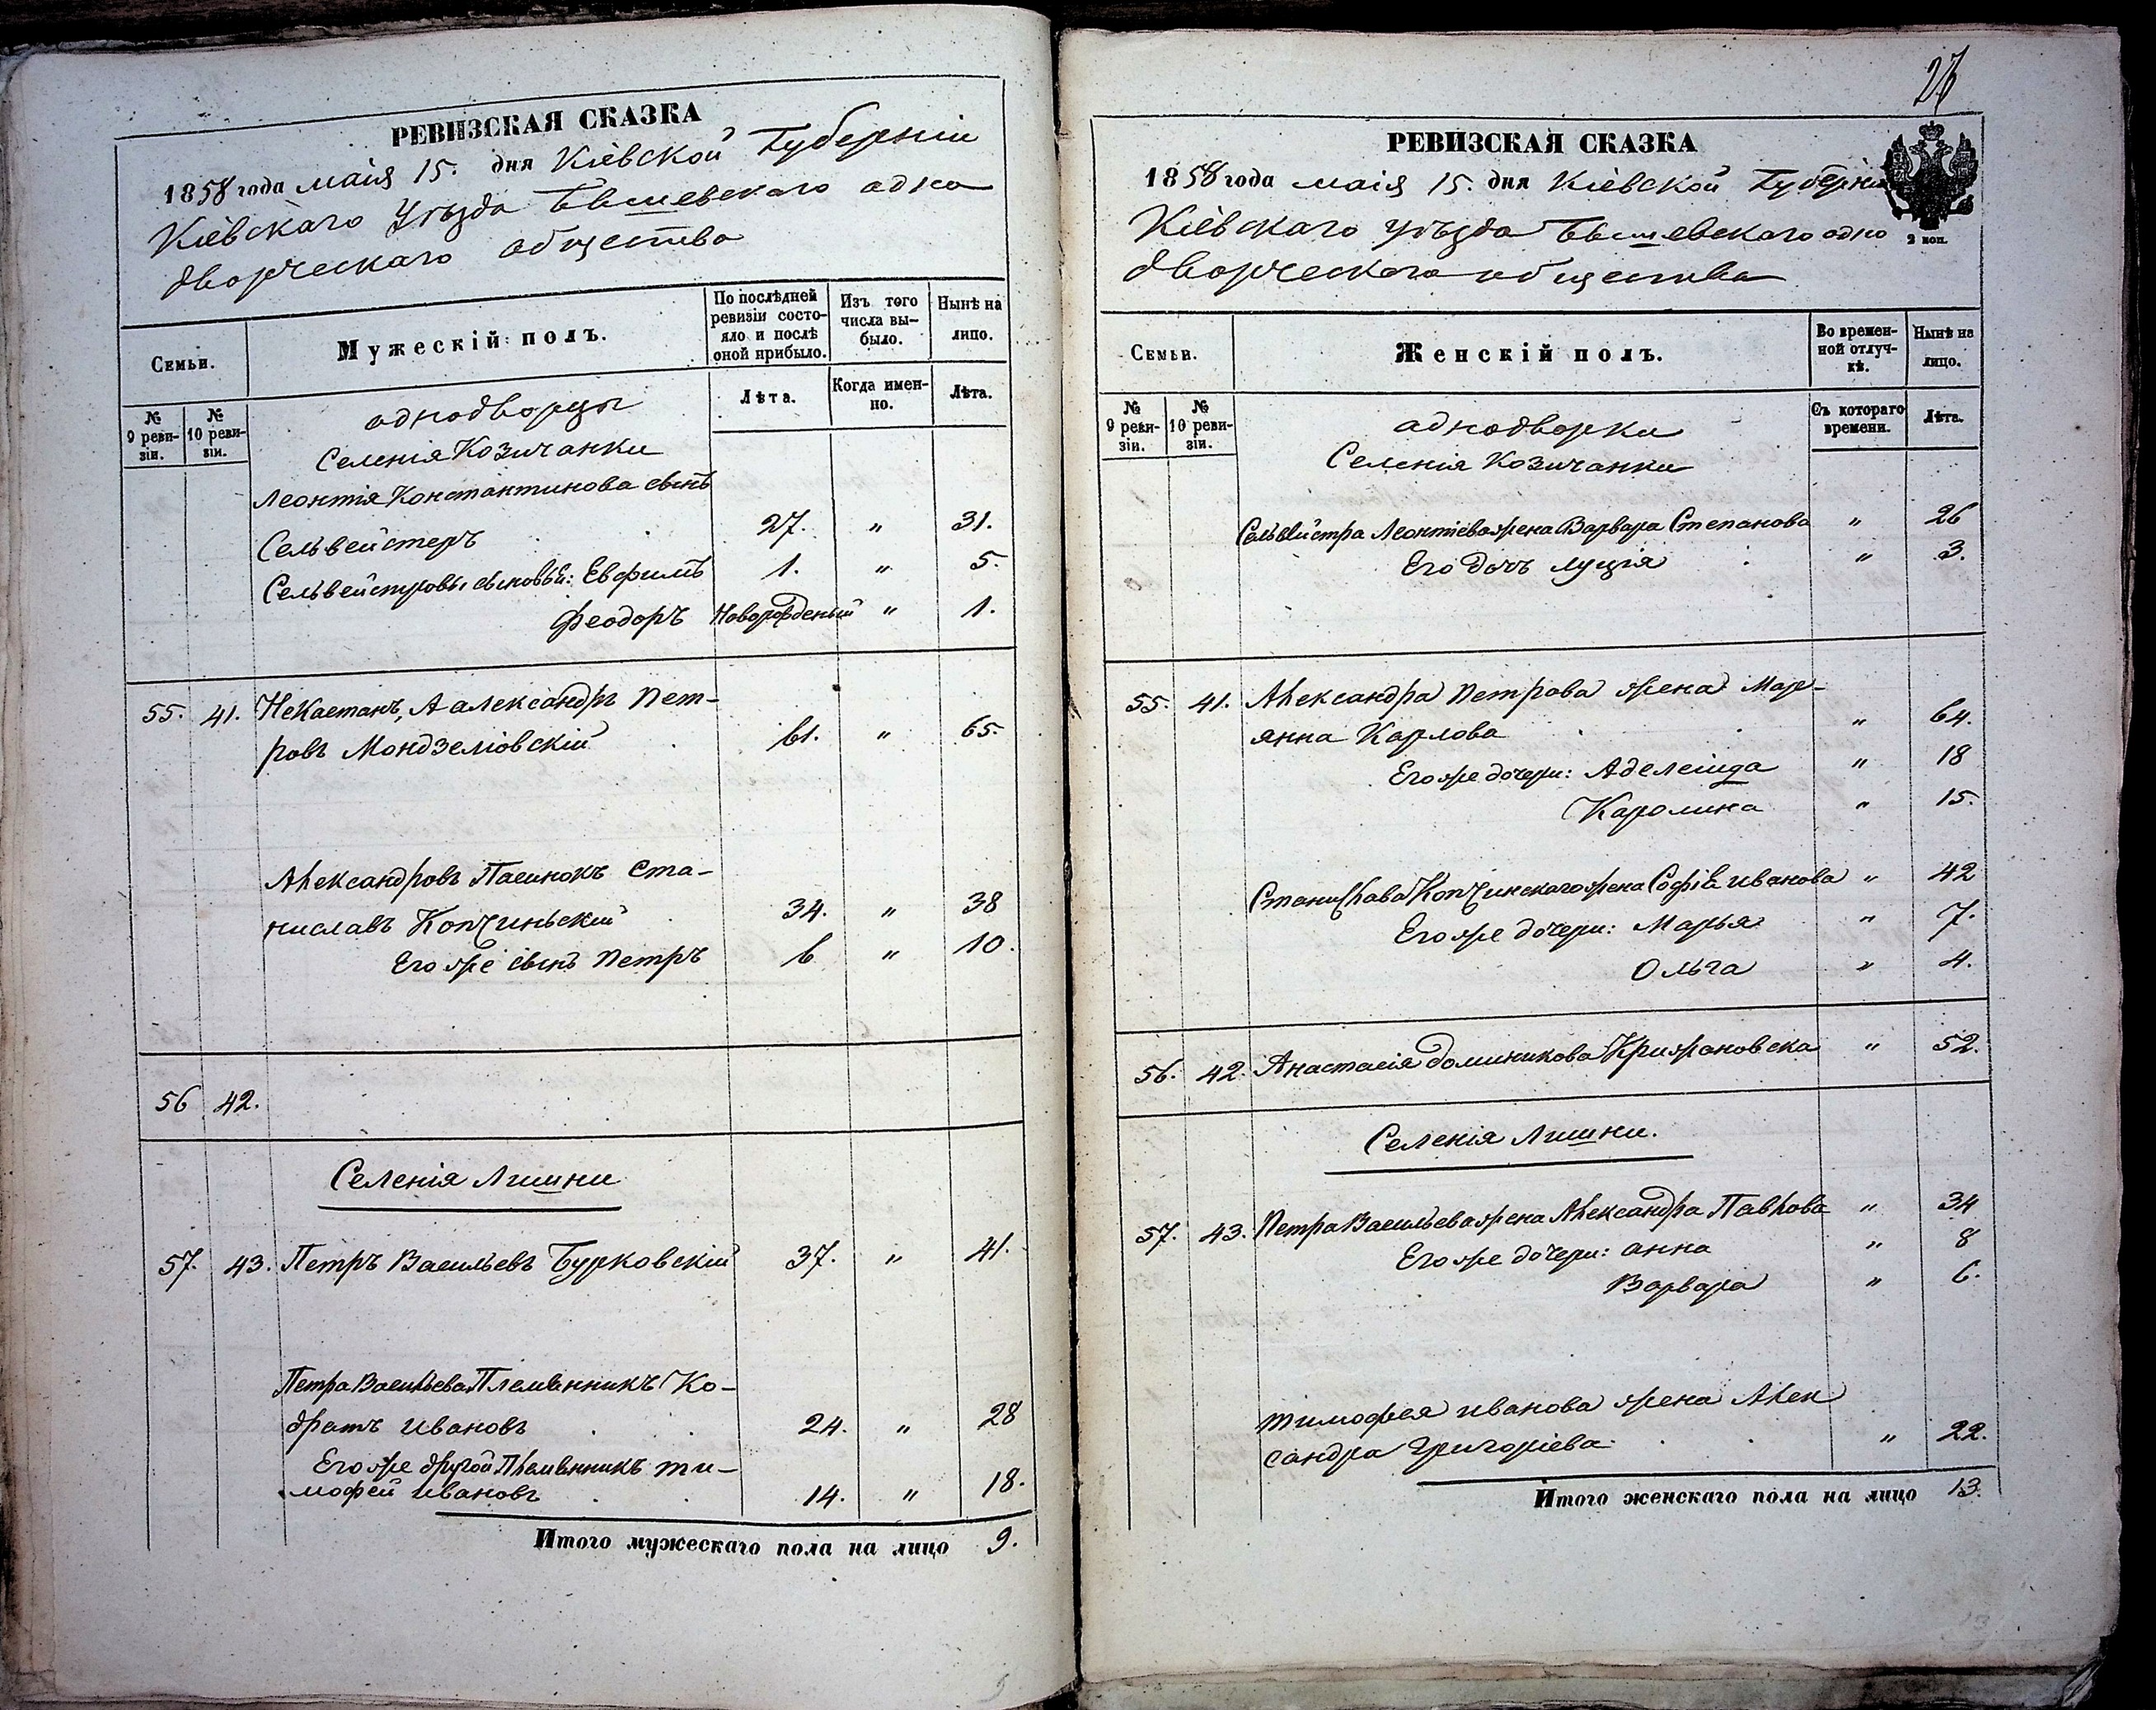 РЕВИЗСКАЯ СКАЗКА
1858 года маія 15. дня Кіевской Губерніи
Кіевскаго Уѣзда Бышевскаго одно
дворческаго общества
Семьи.
Мужескій полъ.
По послѣдней ревизіи состояло и послѣ оной прибыло.
Изъ того числа вы-было.
Нынѣ на лицо.
№ 9 реви-зіи.
№ 10 реви-зіи.
Лѣта.
Когда имен-но.
Лѣта.
однодворцы
Селенія Козичанки
Леонтія Константинова сынъ
Сельвейстеръ 27. " 31.
Сельвейстровы сыновья: Евфимъ 1. " 5.
Феодоръ Новорожденый " 1.
55. 41. Не Каетанъ, А александръ Пет-
ровъ Мондзелѣвскій 61. " 65.
Александровъ Пасинокъ Ста-
ниславъ Копчиньскій 34. " 38
Его же сынъ Петръ 6 " 10.
56 42.
Селенія Лишни
57. 43. Петръ Васильевъ Бурковскій 37. " 41.
Петра Васильева Племянникъ Ко-
дратъ Ивановъ 24. " 28
Его же другой Племянникъ Ти-
мофей Ивановъ 14. " 18.
Итого мужескаго пола на лицо 9.
27
РЕВИЗСКАЯ СКАЗКА
1858 года маія 15. дня Кіевской Губерніи
Кіевскаго уѣзда Бышевскаго одно
дворческаго общества
2 коп.
Семьи.
Женскій полъ.
Во времен-ной отлуч-кѣ.
Нынѣ на лицо.
№ 9 реви-зіи.
№ 10 реви-зіи.
Съ котораго времени.
Лѣта.
однодворки
Селенія Козичанки
Сельвейстра Леонтіева жена Варвара Степанова " 26
Его дочь Луція " 3.
55. 41. Александра Петрова жена Мар-
янна Карлова " 64.
Его же дочери: Аделеида " 18
Каролина " 15.
Станислава Копчинскаго жена Софія Иванова " 42
Его же дочери: Марья " 7.
Ольга " 4.
56. 42. Анастасія Доминикова Крижановска " 52.
Селенія Лишни.
57. 43. Петра Васильева жена Александра Павлова " 34
Его же дочери: анна " 8
Варвара " 6.
Тимофея Иванова жена Алек
сандра Григоріева " 22.
Итого женскаго пола на лицо 13.